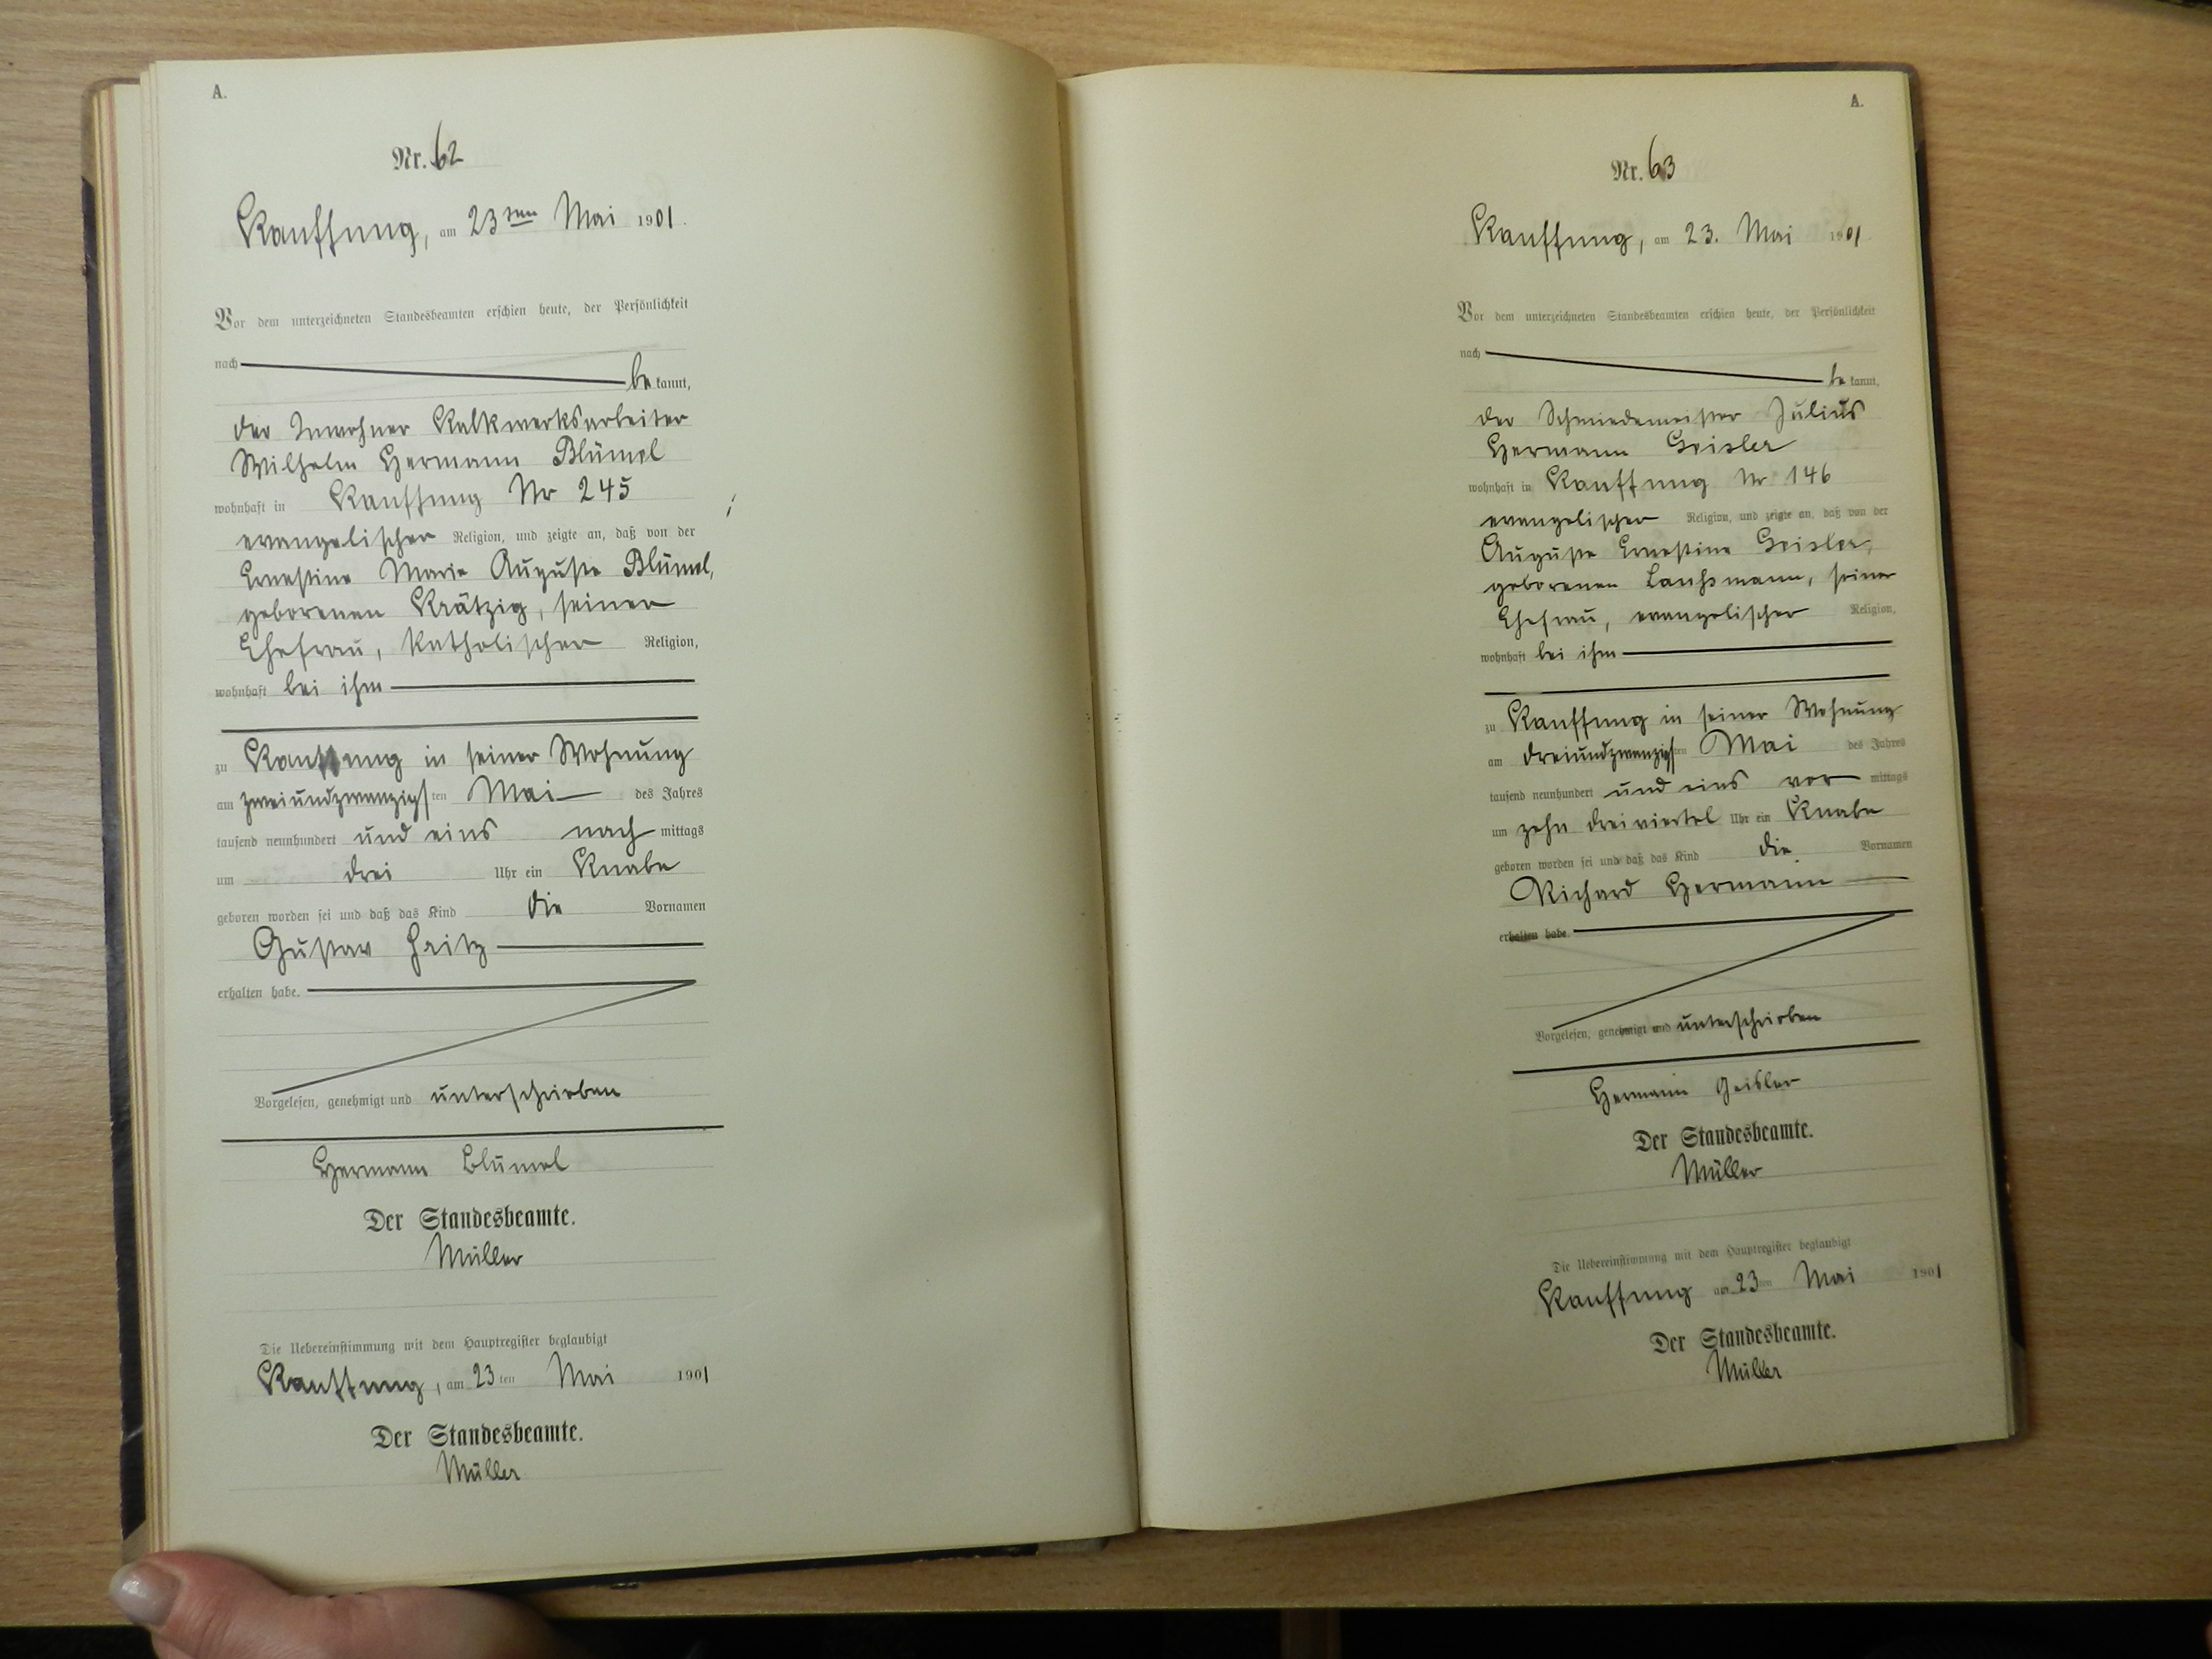 A.
Nr. 62
Kauffung, am 23ten Mai 1901.
Vor dem unterzeichneten Standesbeamten erschien heute, der Persönlichkeit
nach
be kannt,
der Inwohner Kalkwerksarbeiter
Wilhelm Hermann Blümel
wohnhaft in Kauffung Nr 245
evangelischer Religion, und zeigte an, daß von der
Ernestine Marie Auguste Blümel,
geborenen Krätzig, seiner
Ehefrau, katholischer Religion,
wohnhaft bei ihm
zu Kauffung in seiner Wohnung
am zweiundzwanzigsten Mai des Jahres
tausend neunhundert und eins nach mittags
um drei Uhr ein Knabe
geboren worden sei und daß das Kind die Vornamen
Gustav Fritz
erhalten habe.
Vorgelesen, genehmigt und unterschrieben
Hermann Blümel
Der Standesbeamte.
Müller
Die Uebereinstimmung mit dem Hauptregister beglaubigt
Kauffung, am 23ten Mai 1901
Der Standesbeamte.
Müller
A.
Nr. 63
Kauffung, am 23. Mai 1901.
Vor dem unterzeichneten Standesbeamten erschien heute, der Persönlichkeit
nach
be kannt,
der Schmiedemeister Julius
Hermann Geisler
wohnhaft in Kauffung Nr 146
evangelischer Religion, und zeigte an, daß von der
Auguste Ernestine Geisler,
geborenen seiner
Ehefrau, evangelischer Religion,
wohnhaft bei ihm
zu Kauffung in seiner Wohnung
am dreiundzwanzigsten Mai des Jahres
tausend neunhundert und eins vor mittags
um zehn dreiviertel Uhr ein Knabe
geboren worden sei und daß das Kind die Vornamen
Richard Hermann
erhalten habe.
Vorgelesen, genehmigt und unterschrieben
Hermann Geisler
Der Standesbeamte.
Müller
Die Uebereinstimmung mit dem Hauptregister beglaubigt
Kauffung am 23ten Mai 1901
Der Standesbeamte.
Müller